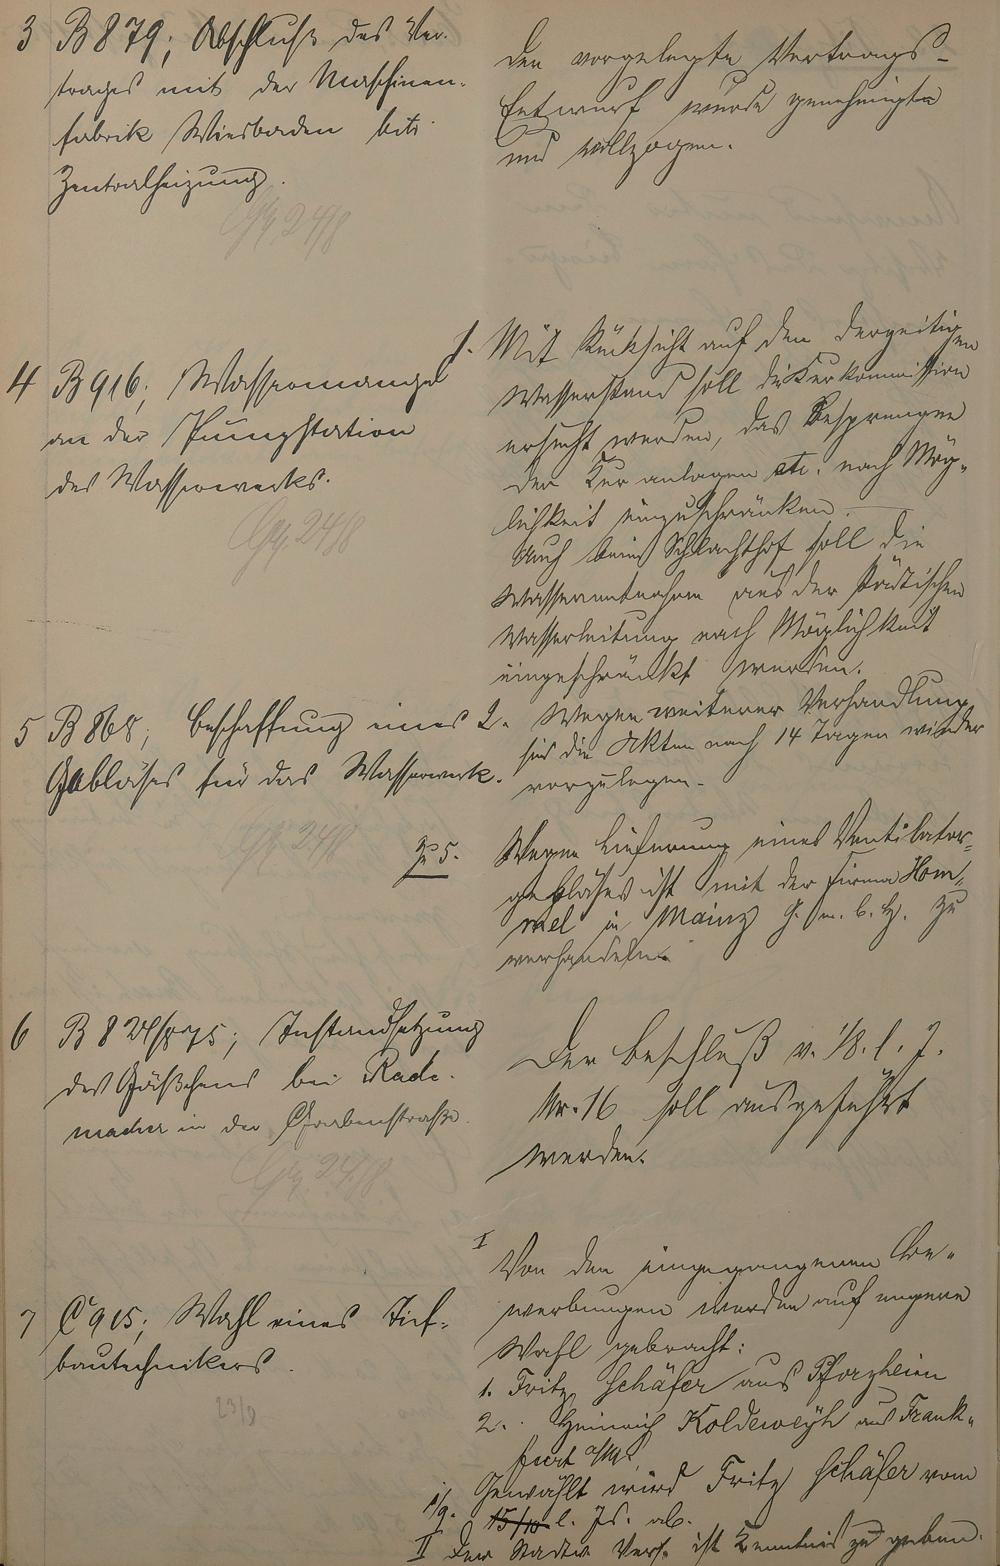 3 B 879; Abschluß des Ver-
trages mit der Maschinen-
fabrik Wiesbaden betr.
Zentralheizung.
24/8
Der vorgelegte Vertrags-
Entwurf wurde genehmigt
und vollzogen.
4 B 916; Wassermangel
an der Pumpstation
des Wasserwerks.
24/8
1. Mit Rücksicht auf den derzeitigen
Wasserstand soll die Kurkommission
ersucht werden, das Besprengen
der Kuranlagen etc. nach Mög-
lichkeit einzuschränken.
Auch beim Schlachthof soll die
Wasserentnahme aus der städtischen
Wasserleitung nach Möglichkeit
eingeschränkt werden.
2. Wegen weiterer Verhandlung
sind die Akten nach 14 Tagen wieder
vorzulegen.
5 B 868; Beschaffung eines
Gebläses für das Wasserwerk.
24/8
Zu 5.
Wegen Lieferung eines Ventilator-
gebläses ist mit der Firma Hom-
mel in Mainz G. m. b. H. zu
verhandeln.
6 B 8 Instandsetzung
des Gäßchens bei Rade-
macher in der Grabenstraße.
24/8
Der Beschluß v. 1/8. l. J.
Nr. 16 soll ausgeführt
werden.
7 C 915; Wahl eines Tief-
bautechnikers.
23/9
I Von den eingegangenen Be-
werbungen werden auf engere
Wahl gebracht:
1. Fritz Schäfer aus Pforzheim
2. Heinrich Koldeweyh aus Frank-
furt a/M.
Gewählt wird Fritz Schäfer vom
1/9. 15/10 l. Js. ab.
II Der Stadtv. Vers. ist Kenntnis zu geben.